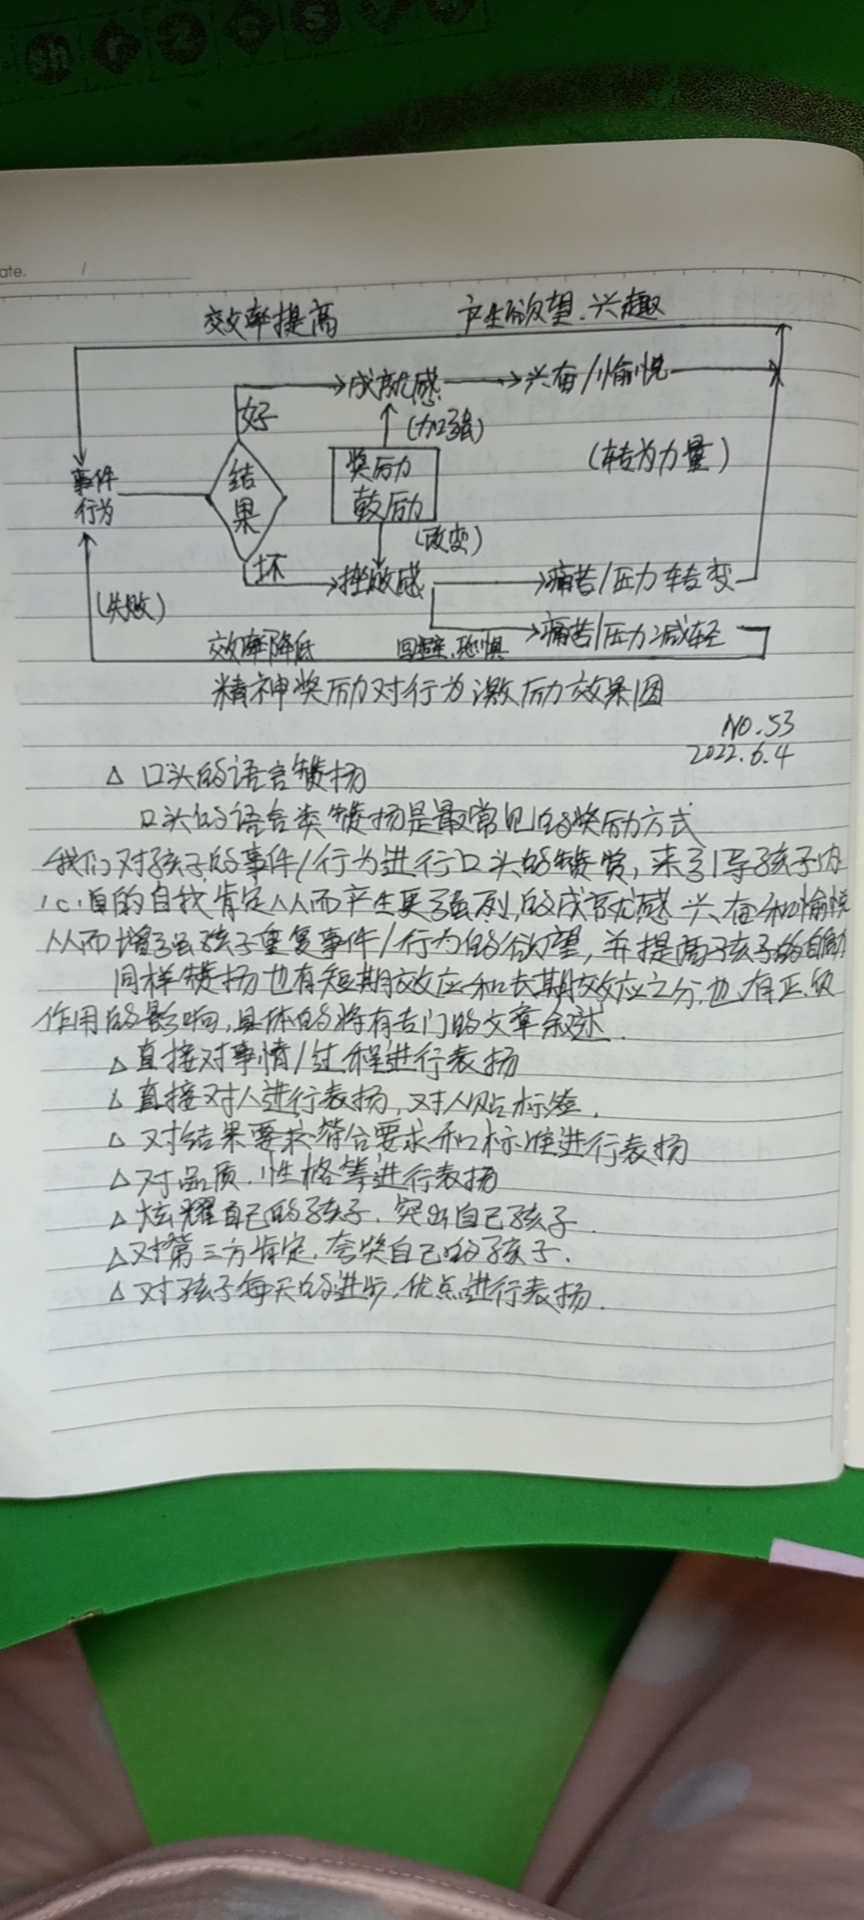 sh r z c s y w
ate. /
效率提高 产生欲望、兴趣
成就感 兴奋/愉悦
好 (加强)
事件 行为
结果
奖励 鼓励
(转为力量)
(改变)
坏 挫败感 痛苦/压力转变
(失败)
效率降低 回避、恐惧 痛苦/压力减轻
精神奖励对行为激励效果图
NO.53
2022.6.4
△ 口头的语言赞扬
口头的语言类赞扬是最常见的奖励方式
我们对孩子的事件/行为进行口头的赞赏,来引导孩子内
心真的自我肯定从而产生更强烈的成就感 兴奋和愉悦
从而增强孩子重复事件/行为的欲望,并提高孩子的自
同样赞扬也有短期效应和长期效应之分,也有正、负
作用的影响,具体的将有专门的文章叙述.
△ 直接对事情/过程进行表扬
△ 直接对人进行表扬,对人贴标签.
△ 对结果要求符合要求和标准进行表扬
△ 对品质、性格等进行表扬
△ 炫耀自己的孩子,突出自己孩子.
△ 对第三方肯定,夸奖自己的孩子.
△ 对孩子每天的进步,优点进行表扬.